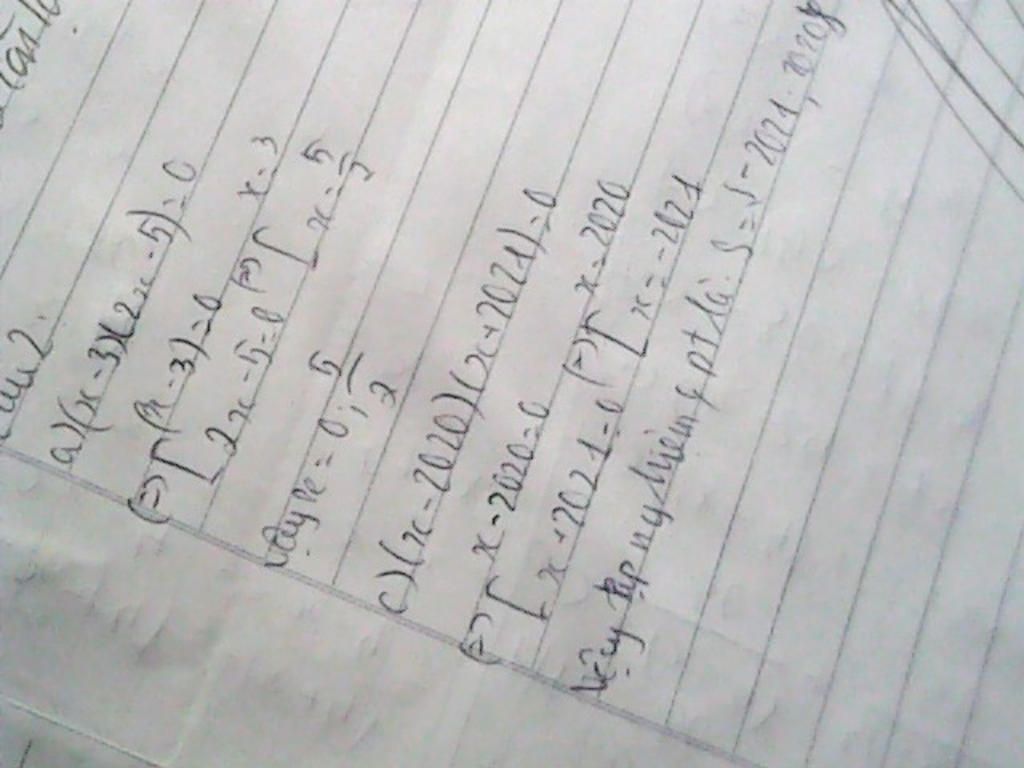 a) (x - 3)(2x - 5) = 0
(=) [ (x - 3) = 0
[ 2x - 5 = 0 (=) [ x = 3
[ x = 5/2
Vậy x = 0; 5/2
c) (x - 2020)(x + 2021) = 0
(=) [ x - 2020 = 0
[ x + 2021 = 0 (=) [ x = 2020
[ x = -2021
Vậy tập nghiệm pt là: S = { -2021; 2020 }